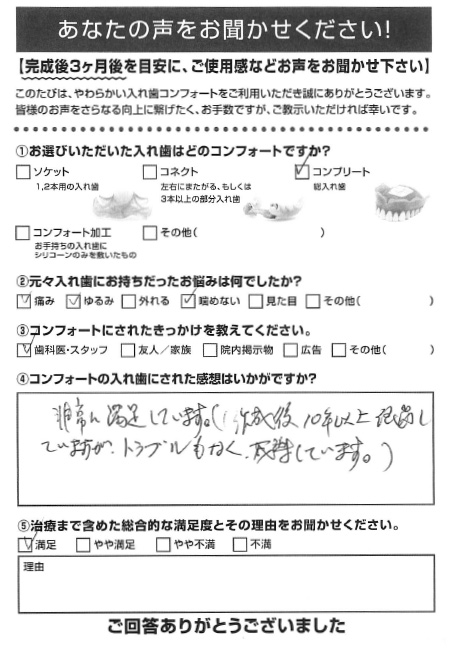 あなたの声をお聞かせください!
【完成後3ヶ月後を目安に、ご使用感などお声をお聞かせ下さい】
このたびは、やわらかい入れ歯コンフォートをご利用いただき誠にありがとうございます。
皆様のお声をさらなる向上に繋げたく、お手数ですが、ご教示いただければ幸いです。
①お選びいただいた入れ歯はどのコンフォートですか?
ソケット
1,2本用の入れ歯
コネクト
左右にまたがる、もしくは
3本以上の部分入れ歯
コンプリート
総入れ歯
コンフォート加工
お手持ちの入れ歯に
シリコーンのみを敷いたもの
その他( )
②元々入れ歯にお持ちだったお悩みは何でしたか?
痛み ゆるみ 外れる 噛めない 見た目 その他( )
③コンフォートにされたきっかけを教えてください。
歯科医・スタッフ 友人/家族 院内掲示物 広告 その他( )
④コンフォートの入れ歯にされた感想はいかがですか?
非常に満足しています。( 作成後 10年以上
ていますが、トラブルもなく、しています。)
⑤治療まで含めた総合的な満足度とその理由をお聞かせください。
満足 やや満足 やや不満 不満
理由
ご回答ありがとうございました